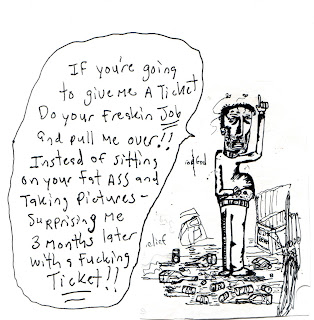 If you're going
to give me A Ticket
Do your Freakin Job
and pull me over!!
Instead of sitting
on your fat Ass and
Taking Pictures -
Surprising me
3 months later
with a fucking
Ticket!!
God
relief